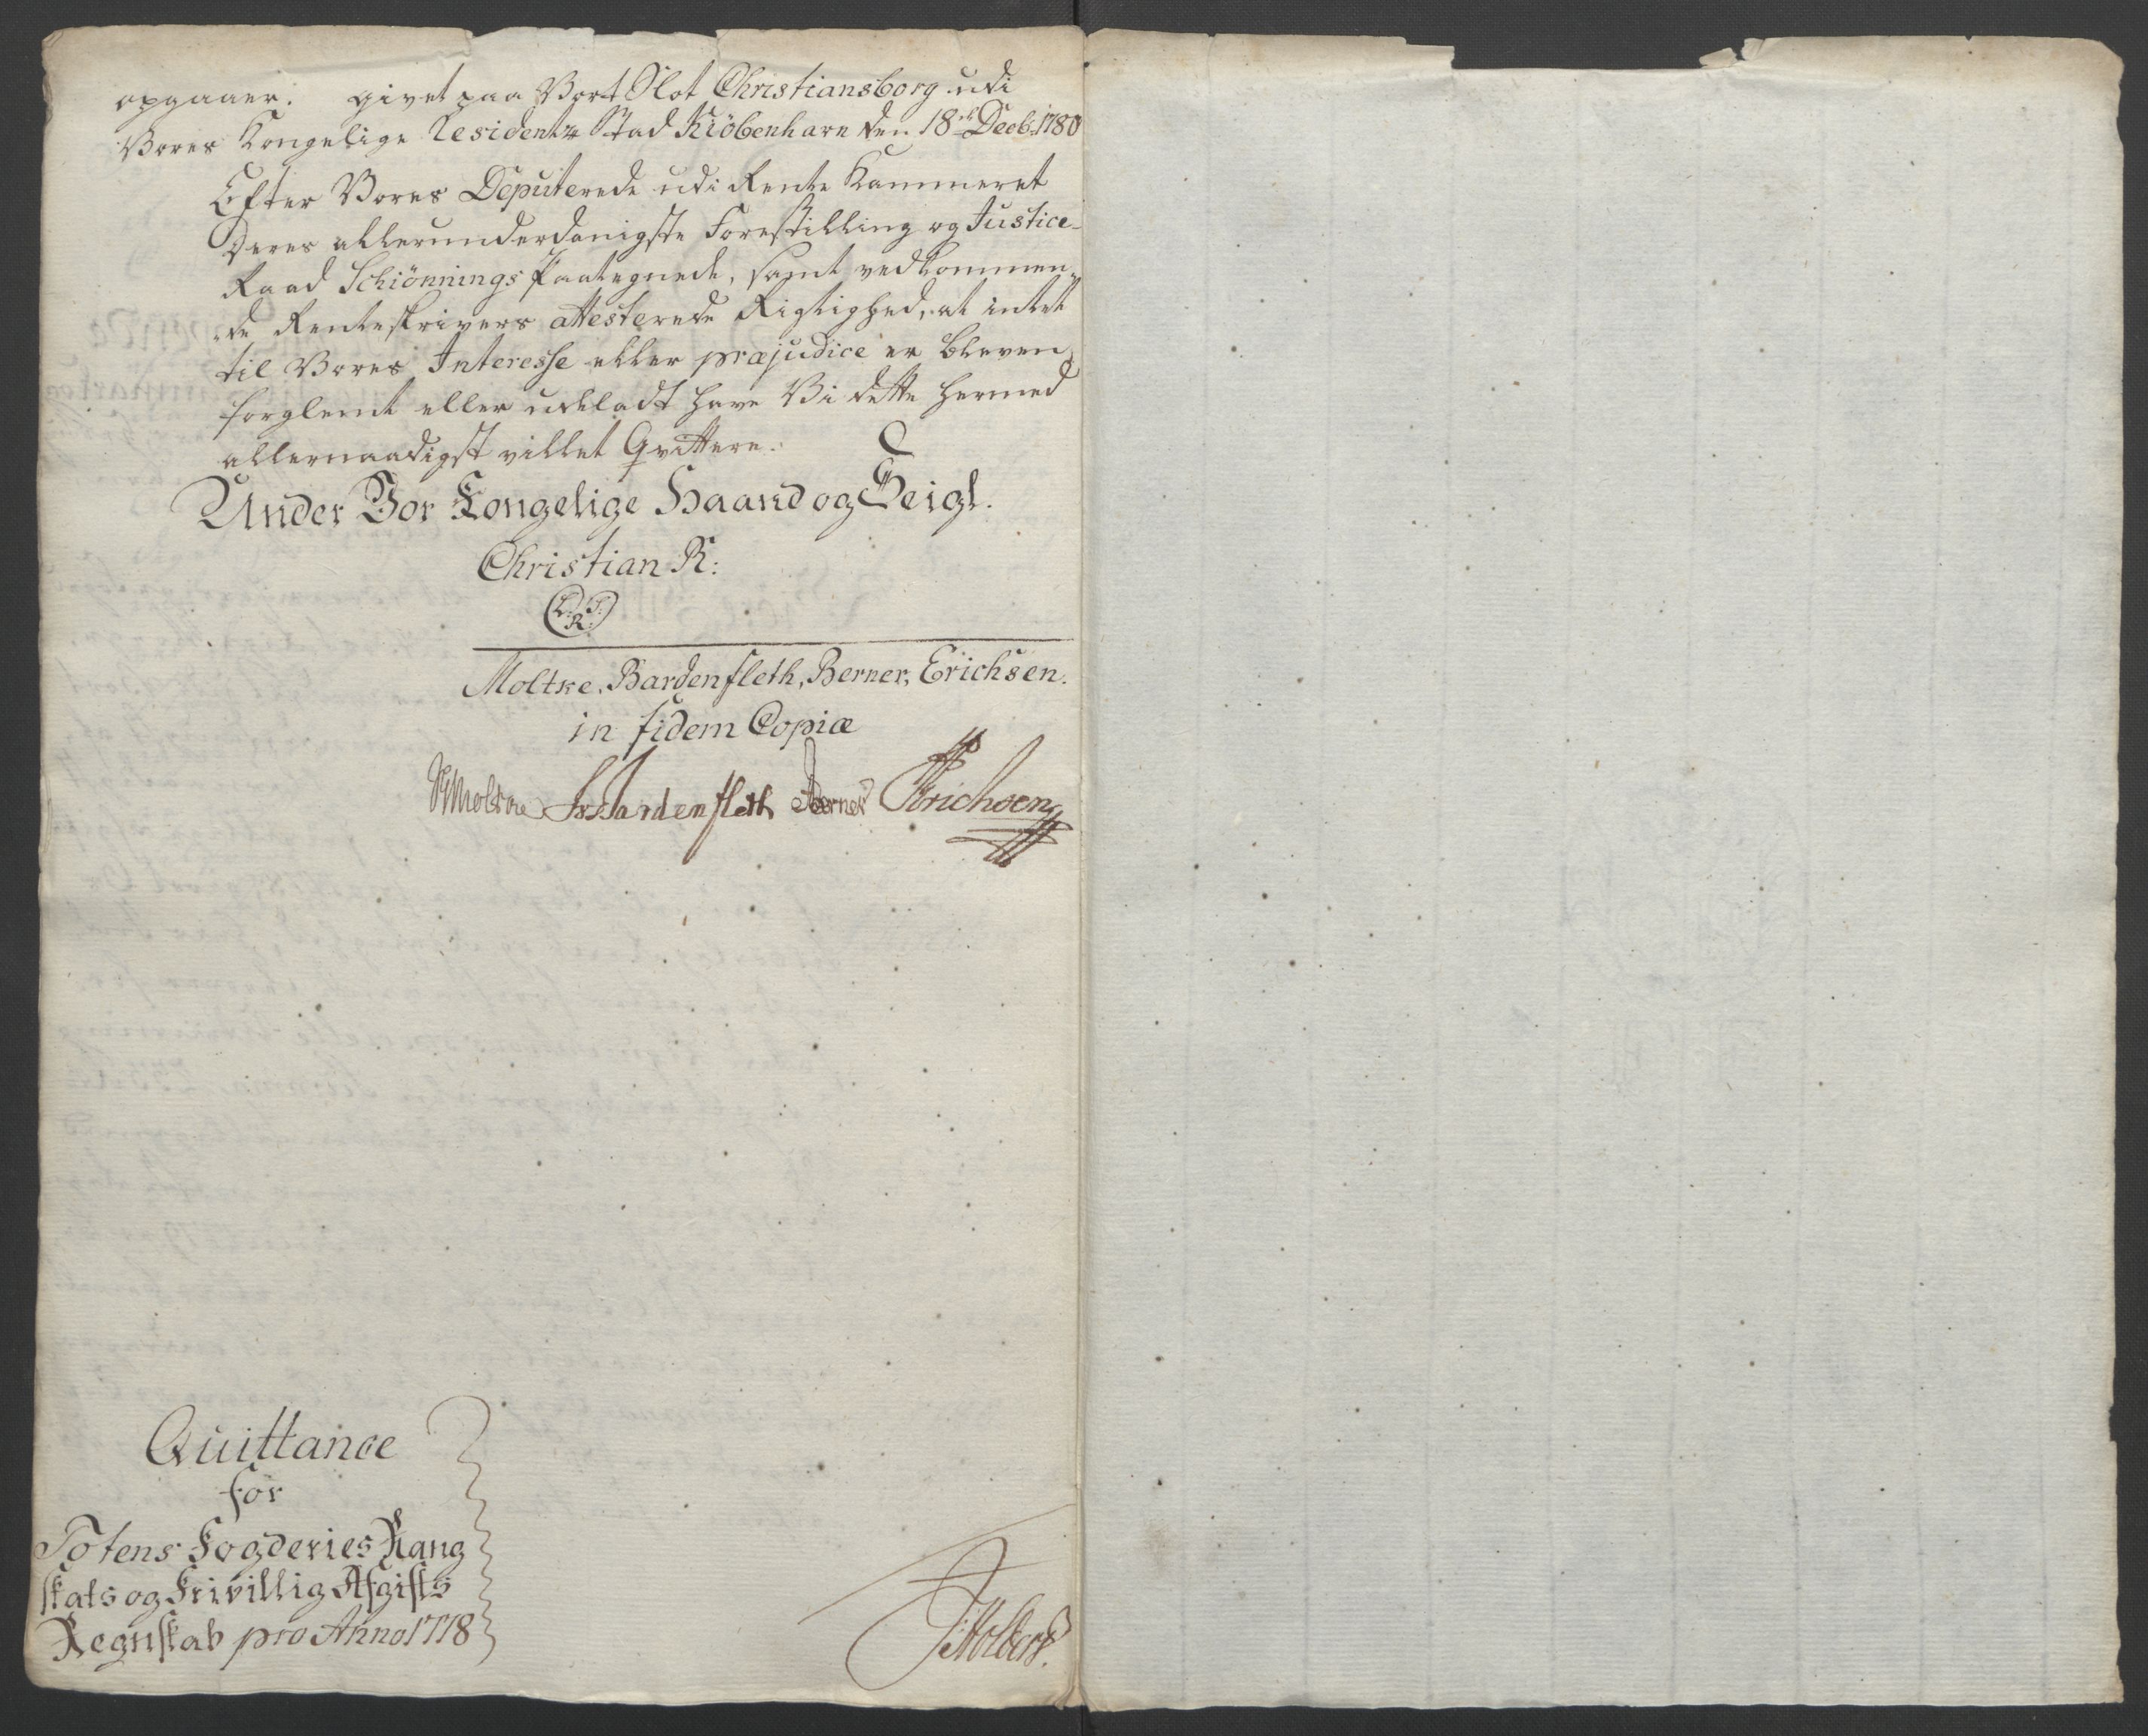 opgaaer. givet paa Vort Slot Christiansborg udi
Vores Kongelige Residentz Stad Kiöbenhavn den 18de Decb: 1780
Efter Vores Deputerede udi Rente Kammeret
Deres allerunderdanigste Forestilling og Justice-
Raad Schiönnings Paategnede, samt vedkommen-
de Renteskrivers attesterede Rigtighed, at intet
til Vores Interesse eller præjudice er bleven
forglemt eller udeladt have Vi dette hermed
allernaadigst villet Qvittere.
Under Vor Kongelige Haand og Seigl.
Christian R:
(L. S. R.)
Moltke, Bardenfleth, Berner, Erichsen.
in fidem Copiæ
Moltke Bardenfleth Berner Erichsen
Quittance
for
Totens Fogderies Rang
skats og Frivillig Afgifts
Regnskab pro Anno 1778